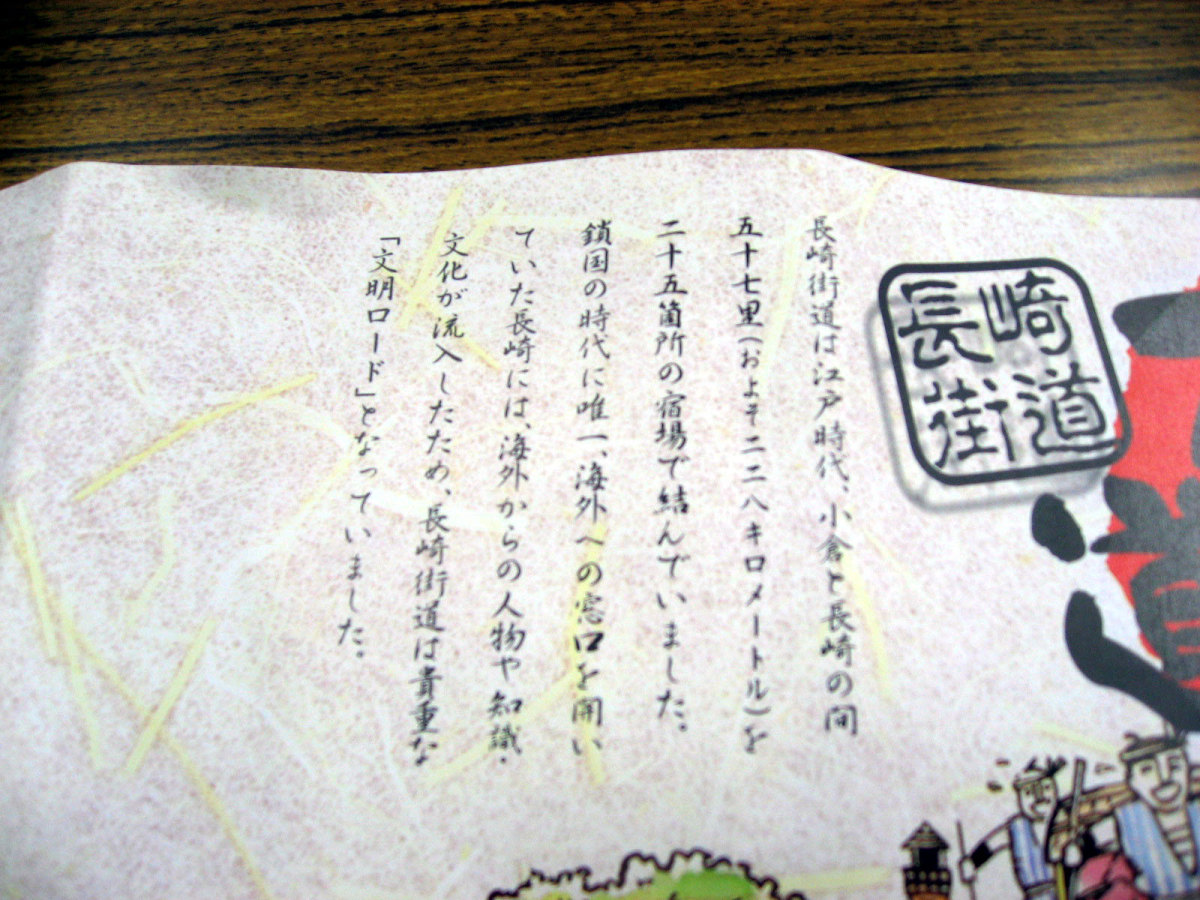 長崎街道
長崎街道は江戸時代、小倉と長崎の間
五十七里(およそ二二八キロメートル)を
二十五箇所の宿場で結んでいました。
鎖国の時代に唯一、海外への窓口を開い
ていた長崎には、海外からの人物や知識・
文化が流入したため、長崎街道は貴重な
「文明ロード」となっていました。